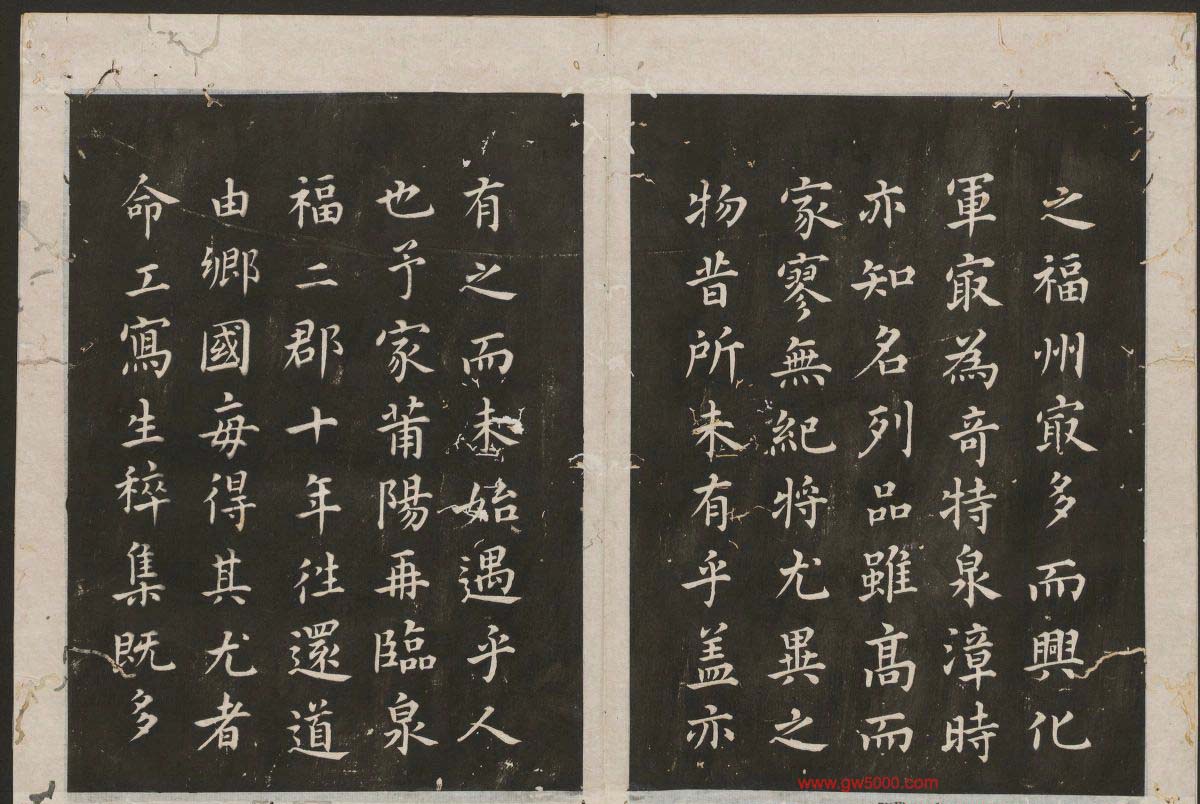 之福州㝡多而興化
軍㝡為竒特泉漳時
亦知名列品雖髙而
家寥無紀将尤異之
物昔所未有乎盖亦
有之而未始遇乎人
也予家莆陽再臨泉
福二郡十年往還道
由鄉國每得其尤者
命工寫生稡集既多
www.gw5000.com